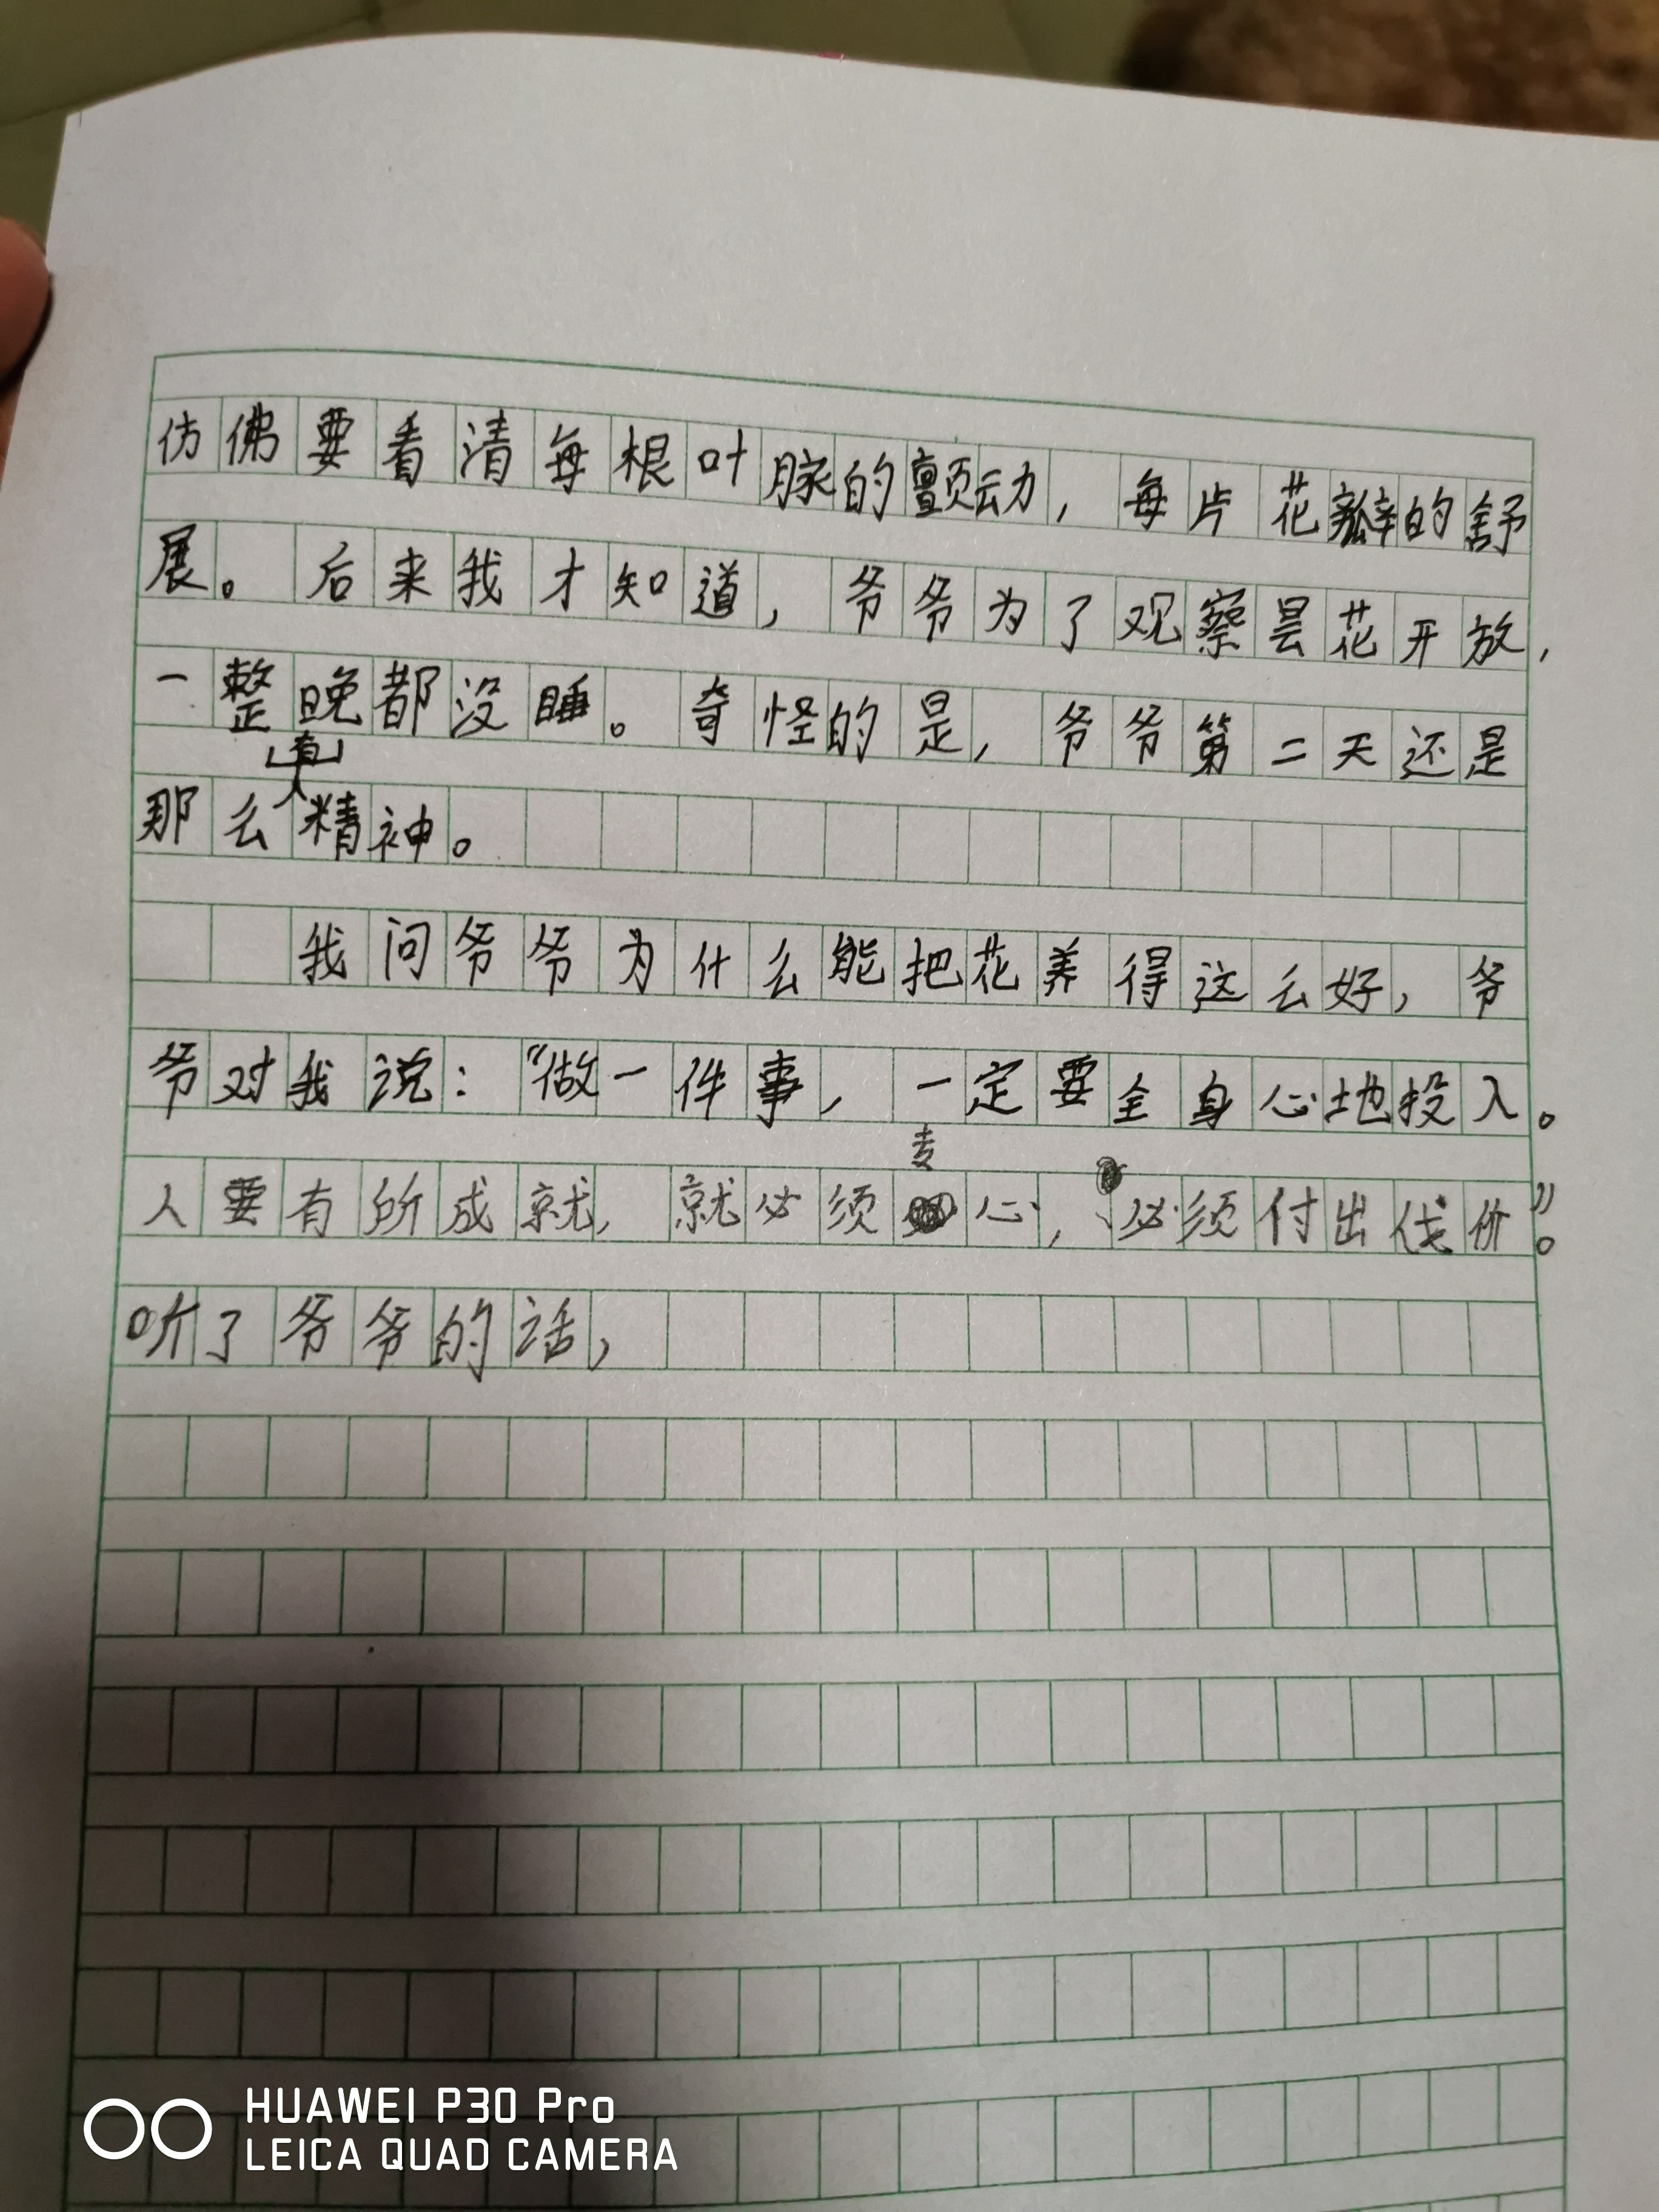 仿佛要看清每根叶脉的颤动，每片花瓣的舒
展。后来我才知道，爷爷为了观察昙花开放，
一整晚都没睡。奇怪的是，爷爷第二天还是
那么有精神。
我问爷爷为什么能把花养得这么好，爷
爷对我说：“做一件事，一定要全身心地投入。
人要有所成就，就必须专心，必须付出代价”。
听了爷爷的话，
HUAWEI P30 Pro
LEICA QUAD CAMERA